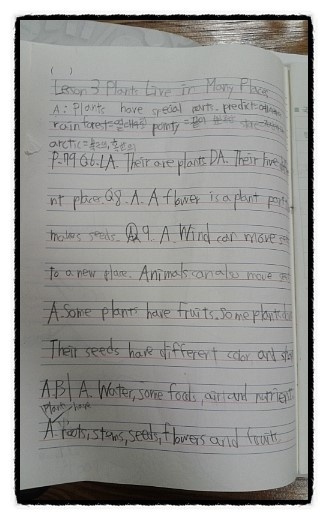 ( )
Lesson 3 Plants Live in Many Place
A: Plants have special parts. predict=
rain forest= pointy=
arctic=
P.79 Q6. A. Their are plants DA. Their live
nt place. Q8. A. A flower is a plant part
makes seeds. Q9. A. Wind can move
to a new place. Animals can also move
A. Some plants have fruits. Some plants
Their seeds have different color and
A.B| A. Water, some foods, air and nutrient
Plants have
A. roots, stems, seeds, flowers and fruit.